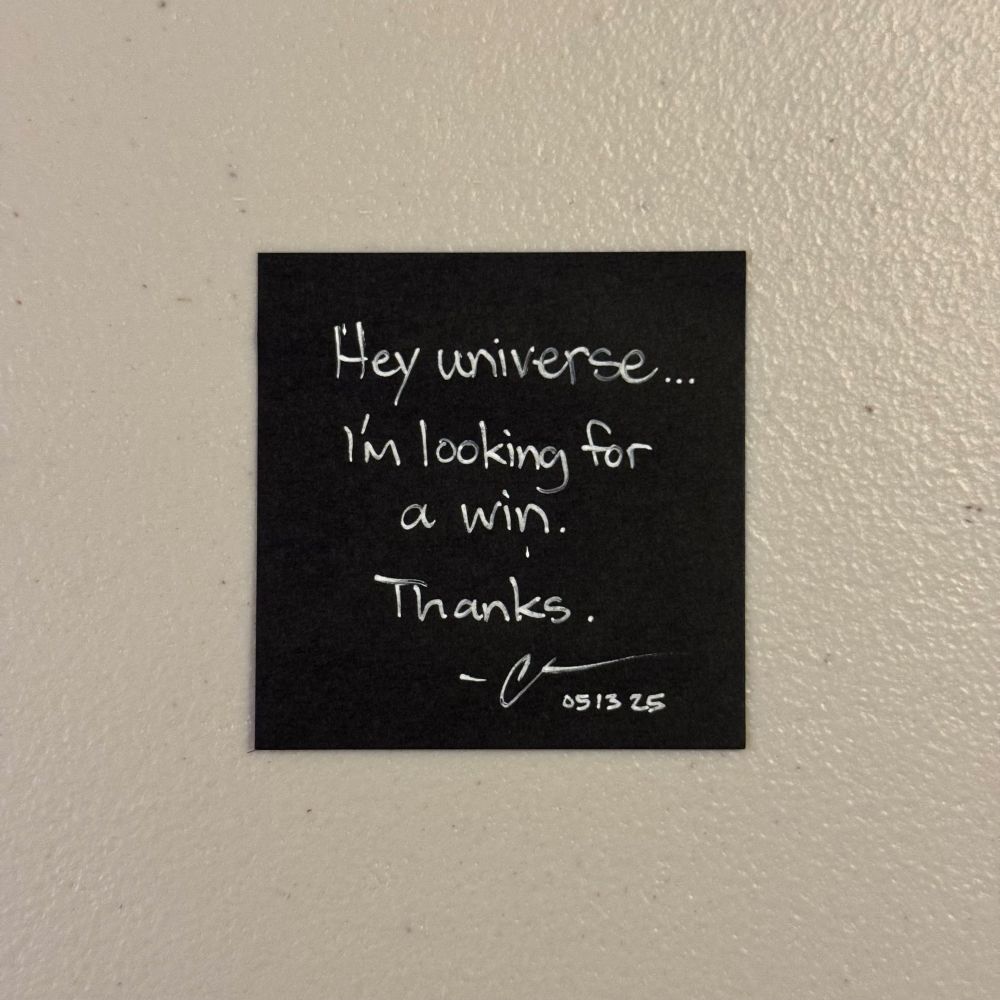 Hey universe...
I'm looking for
a win.
Thanks.
- C
051325